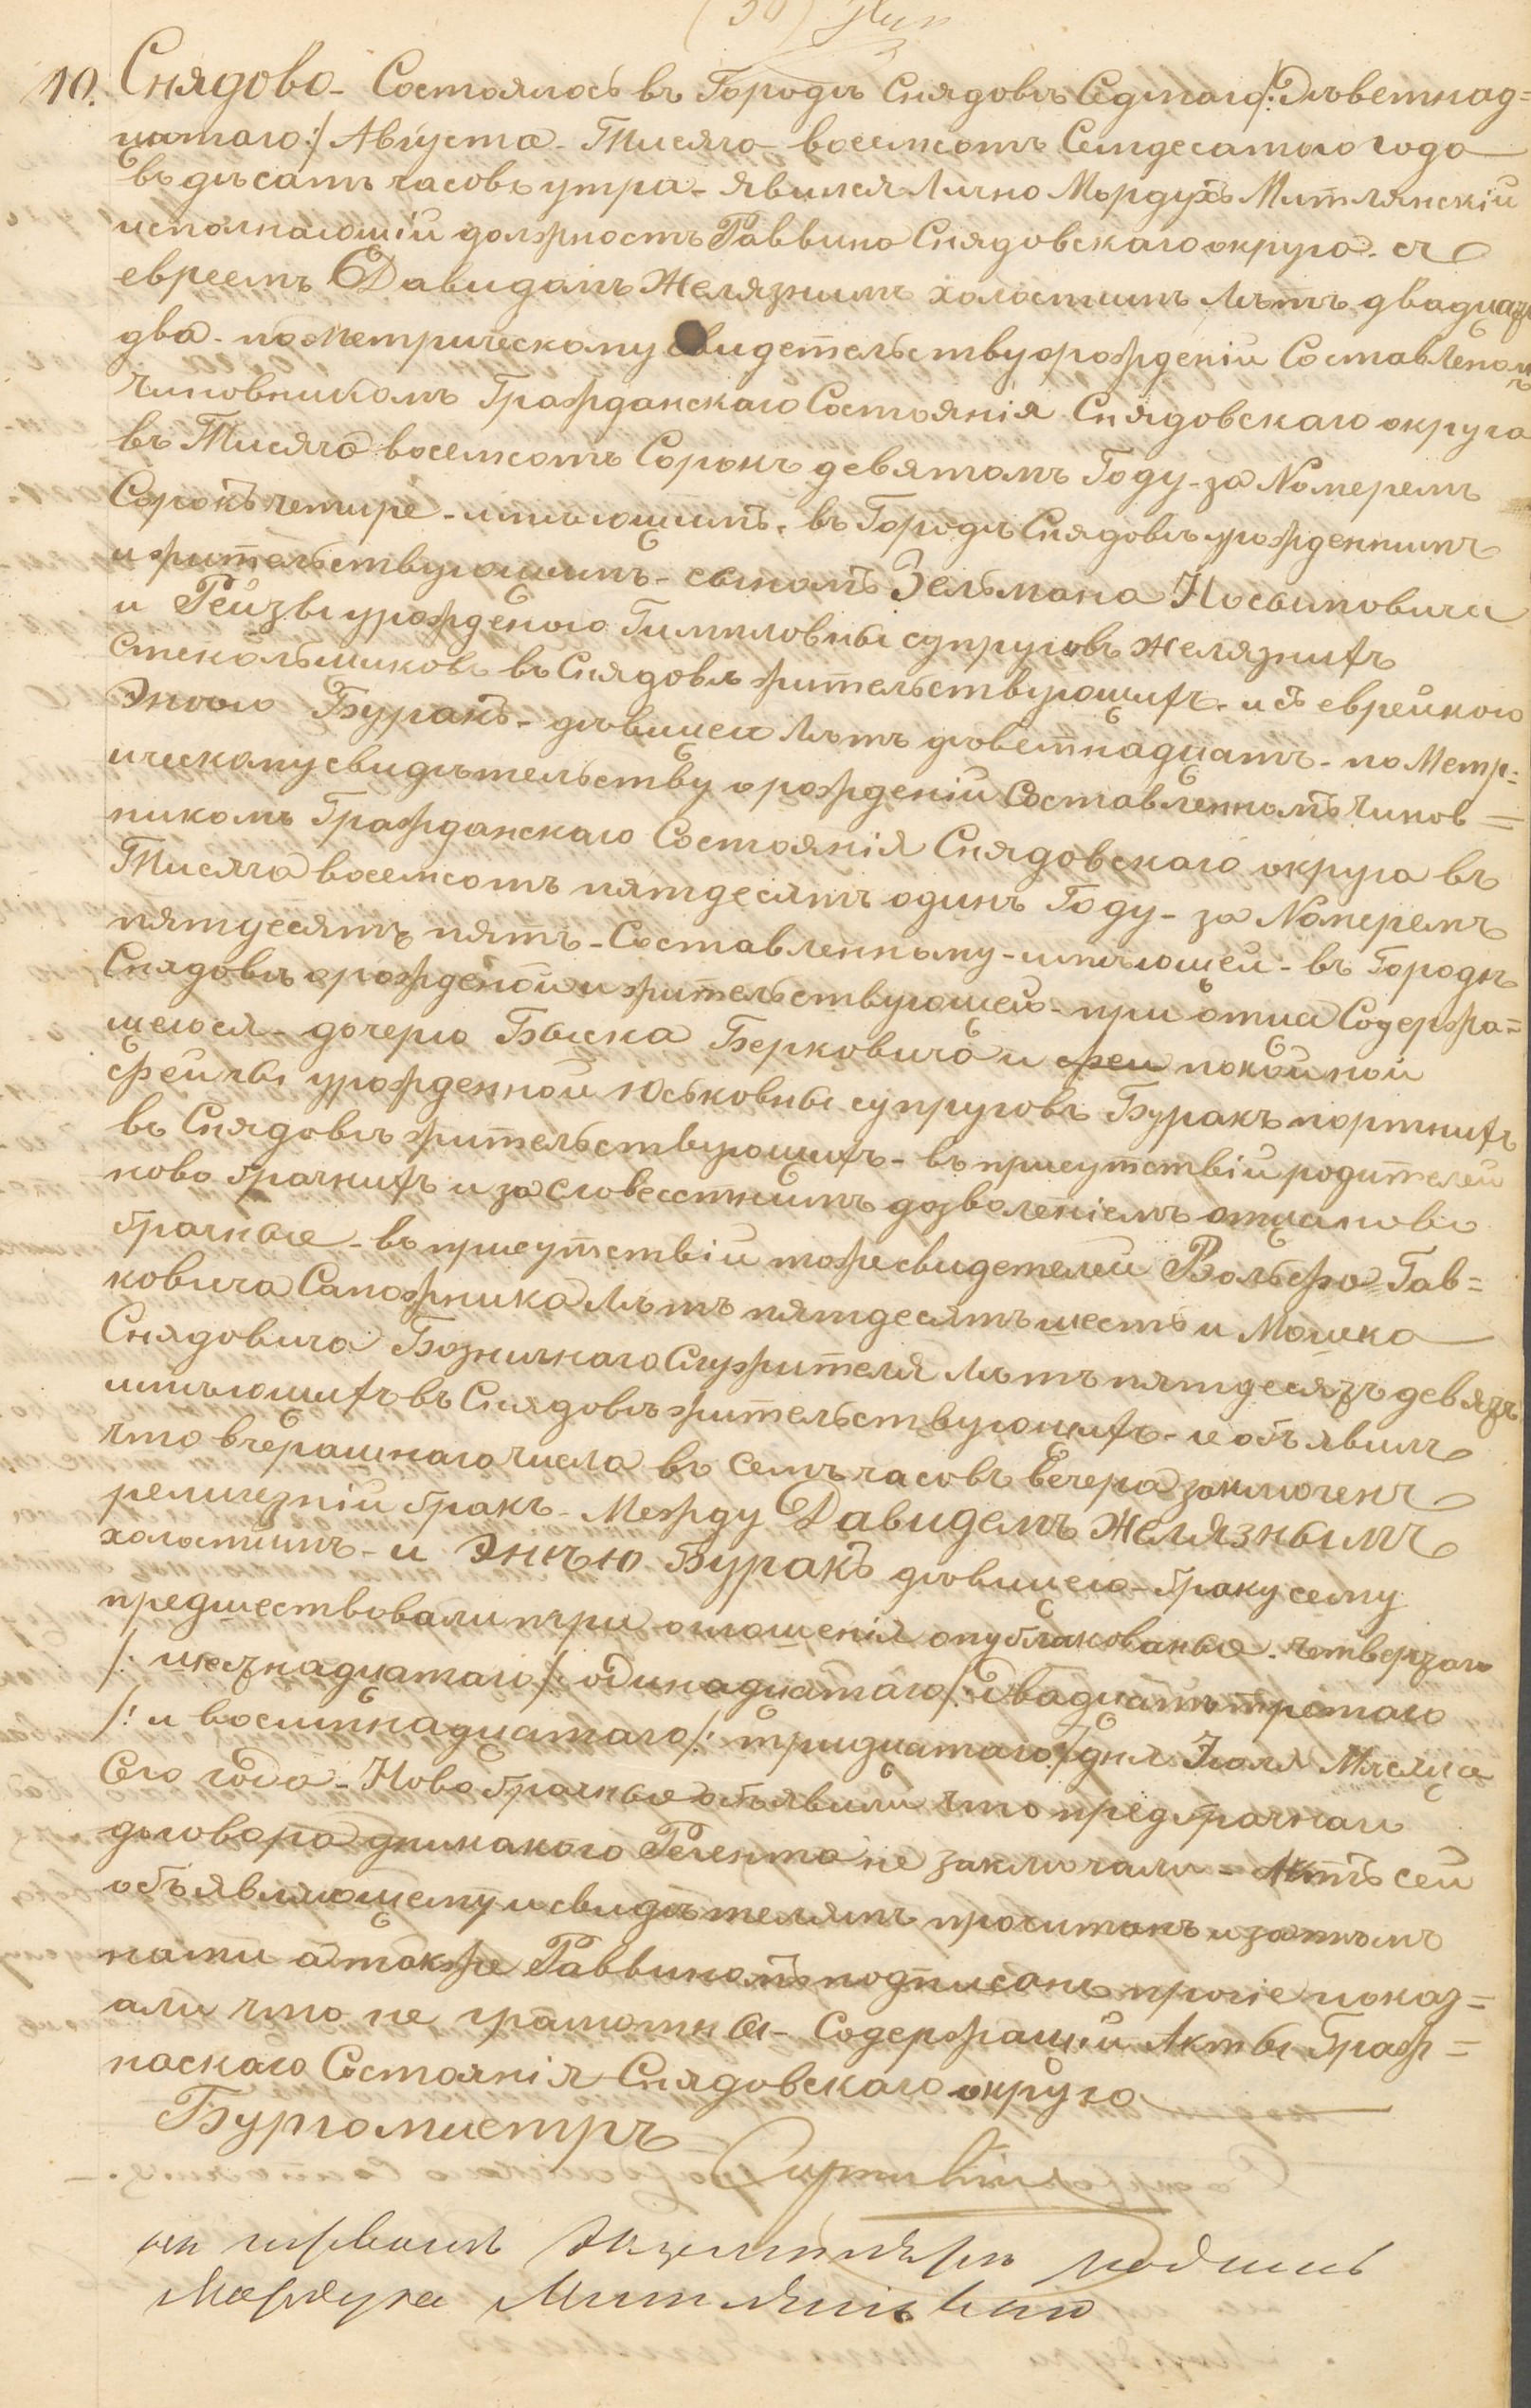 10. Снядово - Состоялось въ Городѣ Снядовѣ Седмаго /: Деветнад=
цатаго :/ Августа - Тисяча восемсотъ Семдесатого года
въ дѣсатъ часовъ утра - явился Лично Мордухъ Митлянскій
исполнающій должность Раввина Снядовскаго округа - съ
евреемъ Давидамъ Желязнимъ холостимъ лѣтъ двадцать
два - по Метрическому свидетельству о рожденіи Составленом
чиновникомъ Гражданскаго Состоянія Снядовскаго округа
въ Тисяча восемсотъ Сорокъ девятомъ Году - за Номеремъ
Сорокъ четире - имѣющимъ - въ Городѣ Снядовѣ урожденнимъ
и жительствующимъ - сыномъ Зельмана Иосьиповича
и Рейзы урожденого Гимпловны супруговъ Желязнихъ
стекольщиковъ въ Снядовѣ жительствующихъ - и съ еврейкою
Энсою Буракъ - дѣвицеи лѣтъ деветнадцатъ - по Метр=
ическому свидѣтельству о рожденіи Составленномъ Чинов=
никомъ Гражданскаго Состоянія Снядовскаго округа въ
Тисяча восемсотъ пятдесятъ одинъ Году - за Номеремъ
пятдесятъ пятъ - Составленному - имѣющей - въ Городѣ
Снядовѣ урожденой и жительствующею - при отца Содержа=
щеюся - дочерю Быска Берковича и жеи покойной
Фейгы урожденной Юськовны супруговъ Буракъ портнихъ
въ Снядовѣ жительствующихъ - въ присутствіи родителей
ново брачнихъ и за словесстнимъ дозволеніемъ отца ново
брачные - въ присутствіи тоже свидетелей Вольфа Гав=
ковича Сапожника лѣтъ пятдесятъ шесть и Мошка
Снядовича Божничнаго Служителя лѣтъ пятдесятъ девять
имѣющихъ въ Снядовѣ жительствующихъ - и объявилъ
что вчерашнаго числа въ семъ часовъ вечера заключенъ
религезній бракъ - Между Давидемъ Желязнымъ
холостимъ - и Энкъю Буракъ дѣвицею - браку сему
предшествовали три оглошенія опубликованые - четвертаго
/: шестнадцатаго :/ одинадцатаго /: двадцатъ третаго
/: и восимнадцатаго /: тридцатаго :/ дня Июля Мясяца
Сего года - Ново брачные объявили что предбрачнаи
договора у никакого Регента не заключали - Актъ сей
объявляющему и свидѣтелямъ прочитанъ и затѣмъ
нами а также Раввиномъ подписанъ прочіе показ=
али что не грамотны - Содержащій Акты Граж=
наскаго Состоянія Снядовскаго округа
Бургомистръ
Мордуха Митлянскій